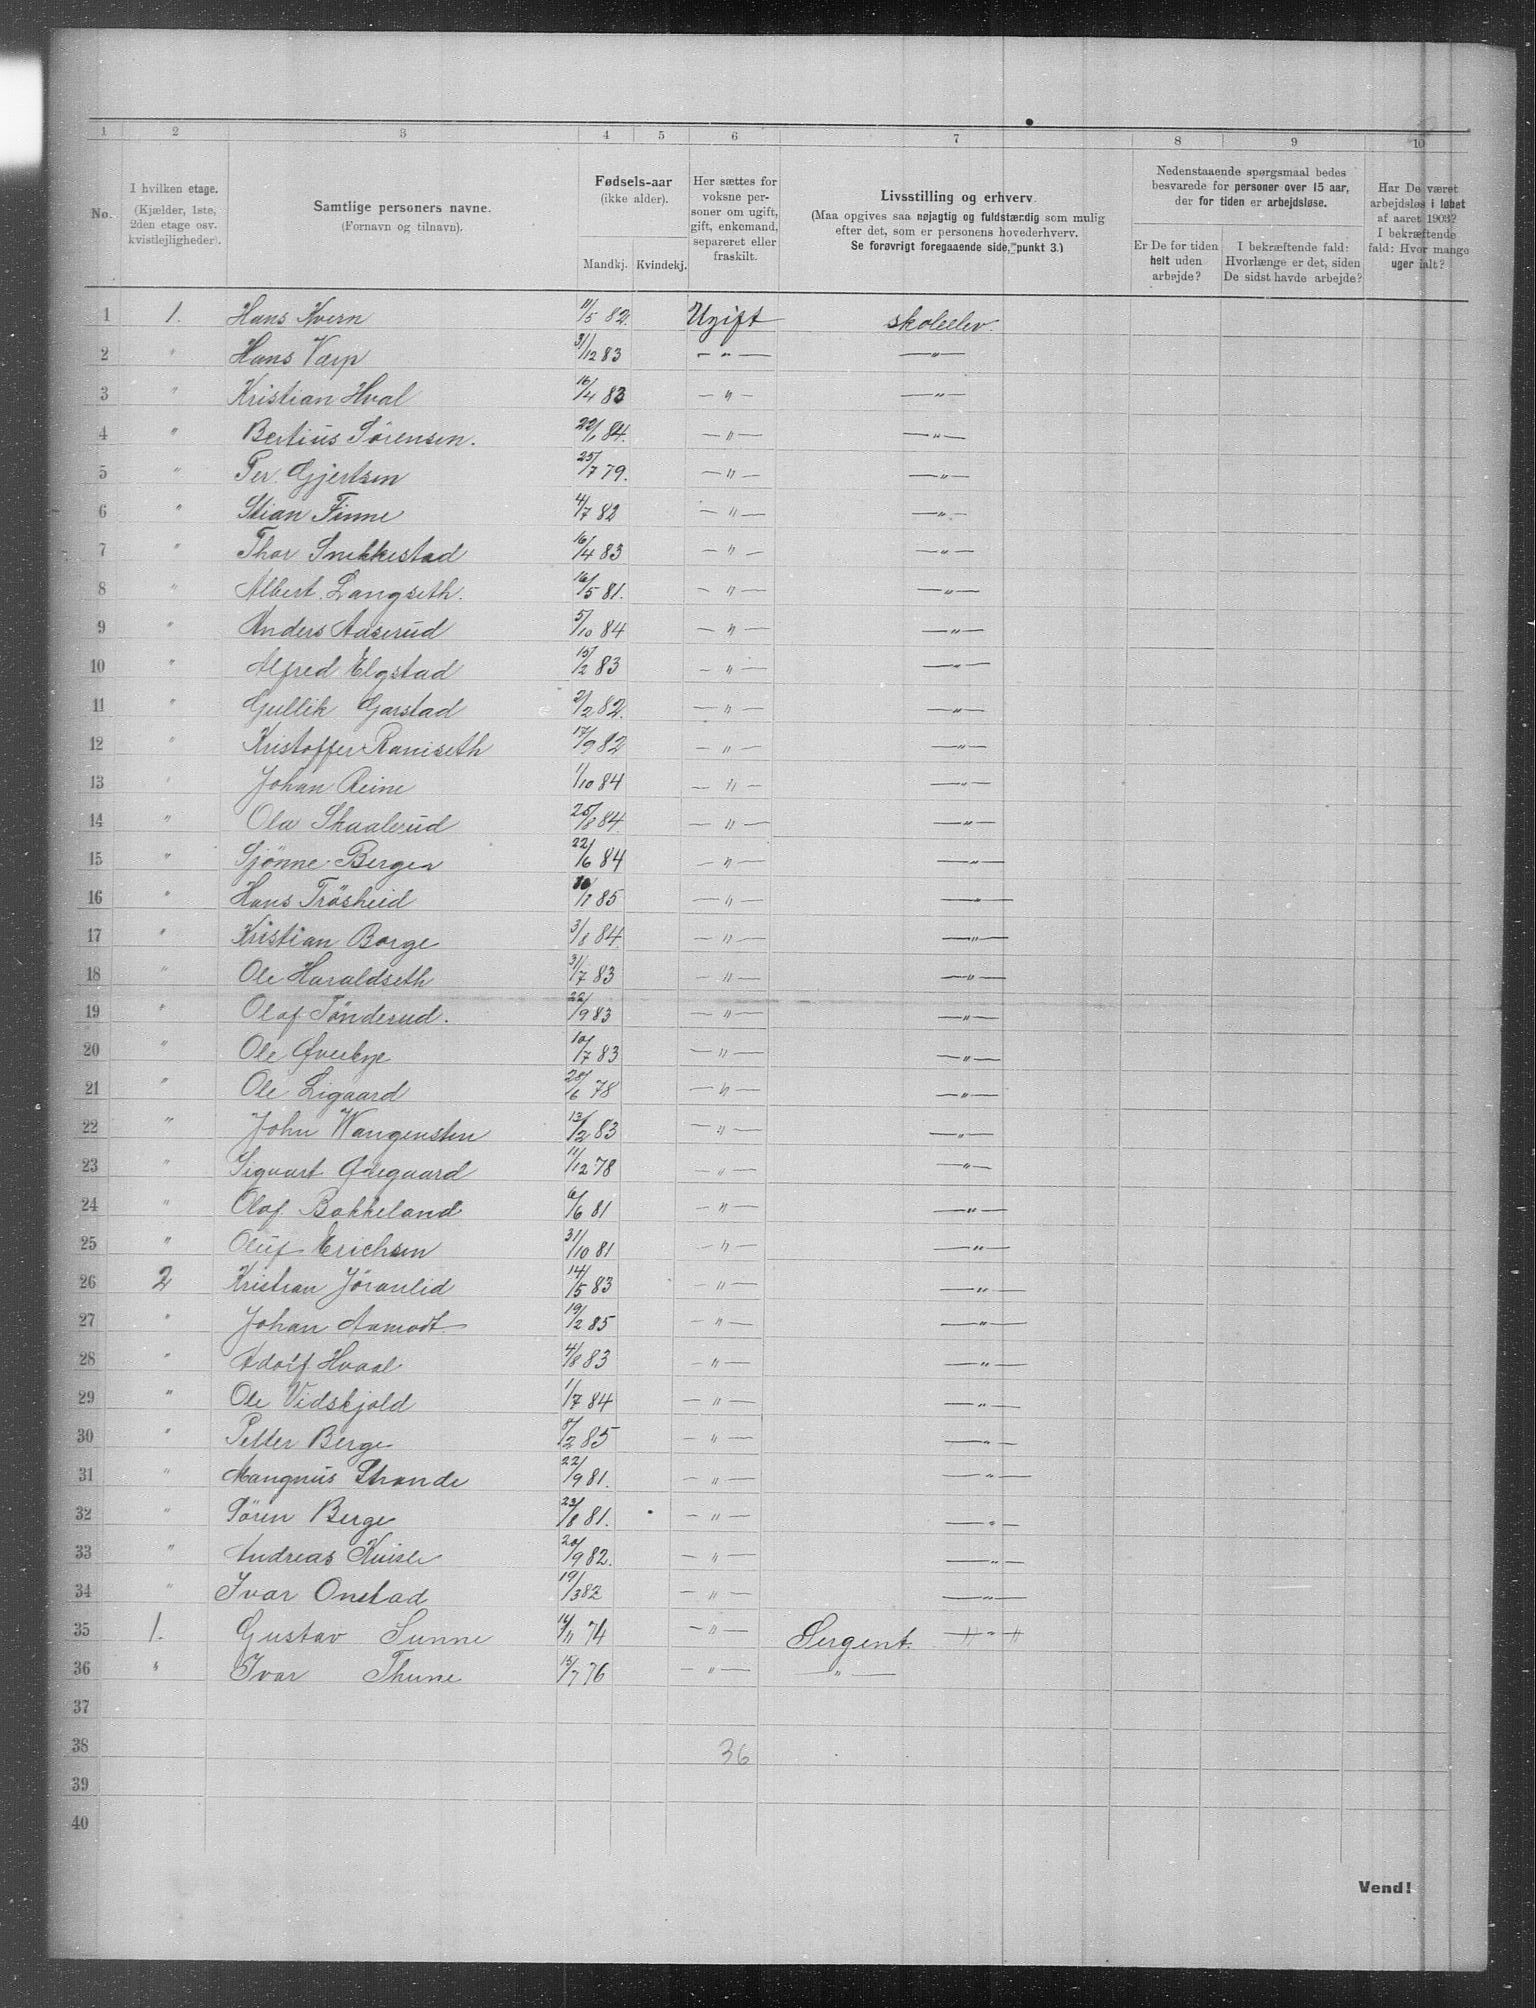 1 2 3 4 5 6 7 8 9 10
No. I hvilken etage. (Kjælder, 1ste, 2den etage osv. kvistlejligheder). Samtlige personers navne. (Fornavn og tilnavn). Fødsels-aar (ikke alder). Mandkj. Kvindekj. Her sættes for voksne personer om ugift, gift, enkemand, separeret eller fraskilt. Livsstilling og erhverv. (Maa opgives saa nøjagtig og fuldstændig som mulig efter det, som er personens hovederhverv. Se forøvrigt foregaaende side, punkt 3.) Nedenstaaende spørgsmaal bedes besvarede for personer over 15 aar, der for tiden er arbejdsløse. Er De for tiden helt uden arbejde? I bekræftende fald: Hvorlænge er det, siden De sidst havde arbejde? Har De været arbejdsløs i løbet af aaret 1903? I bekræftende fald: Hvor mange uger ialt?
1 1. Hans Kvern 11/5 82. Ugift skoleelev
2 " Hans Varp 31/12 83 — " — — " —
3 " Kristian Hval 16/4 83 — " — — " —
4 " Bertius Sørensen. 22/1 84. — " — — " —
5 " Per Gjertsen 25/7 79. — " — — " —
6 " Stian Finne 4/7 82 — " — — " —
7 " Thor Snekkestad 16/4 83 — " — — " —
8 " Albert Langseth. 16/5 81. — " — — " —
9 " Anders Aaserud 5/10 84 — " — — " —
10 " Alfred Elgstad 15/2 83 — " — — " —
11 " Gullik Garstad 2/2 82. — " — — " —
12 " Kristoffer Ramseth 17/9 82 — " — — " —
13 " Johan Reine 1/10 84 — " — — " —
14 " Ola Skaalerud 25/8 84. — " — — " —
15 " Sjönne Bergen 22/6 84 — " — — " —
16 " Hans Tröskeid 10/1 85 — " — — " —
17 " Kristian Borge 3/8 84. — " — — " —
18 " Ole Haraldseth 31/7 83 — " — — " —
19 " Olaf Tönderud. 22/9 83 — " — — " —
20 " Ole Øverbye 10/7 83 — " — — " —
21 " Ole Ligaard 28/6 78 — " — — " —
22 " John Wangensten 13/2 83 — " — — " —
23 " Sigvart Ødegaard 11/12 78 — " — — " —
24 " Olaf Bakkeland 6/6 81 — " — — " —
25 " Oluf Erichsen 31/10 81 — " — — " —
26 2 Kristian Jöranlid 14/5 83 — " — — " —
27 " Johan Aamodt 19/2 85 — " — — " —
28 " Adolf Hvaal 4/8 83 — " — — " —
29 " Ole Vidskjold 1/7 84 — " — — " —
30 " Petter Berge 8/2 85 — " — — " —
31 " Mangnus Strande 22/9 81. — " — — " —
32 " Sören Berge 23/8 81. — " — — " —
33 " Andreas Kvisle 20/9 82. — " — — " —
34 " Ivar Onstad 19/3 82 — " — — " —
35 1. Gustav Sunne 14/11 74 — " — Sergent. — " —
36 " Ivar Thune 15/7 76 — " — " —
37
38 36
39
40
Vend!